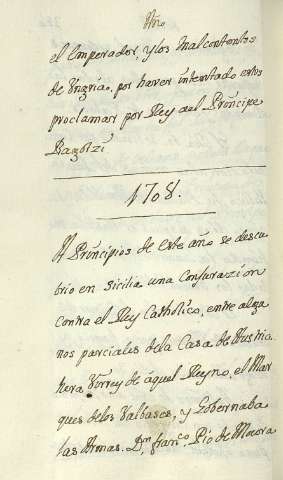 el Emperador, y los Malcontentos
de Ungria, por haver intentado estos
proclamar por Rey ael Principe
Ragotzi
1708.
A Principios de este año se descu
brio en Sicilia una Conjurazion
contra el Rey Catholico, entre algu
nos parciales dela Casa de Austria
hera Virrey de aquel Reyno, el Mar
ques delos Valbases, y Gobernaba
las Armas. Dn. franco. Pio de Moura